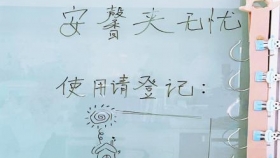 安馨夹无忧
使用请登记：